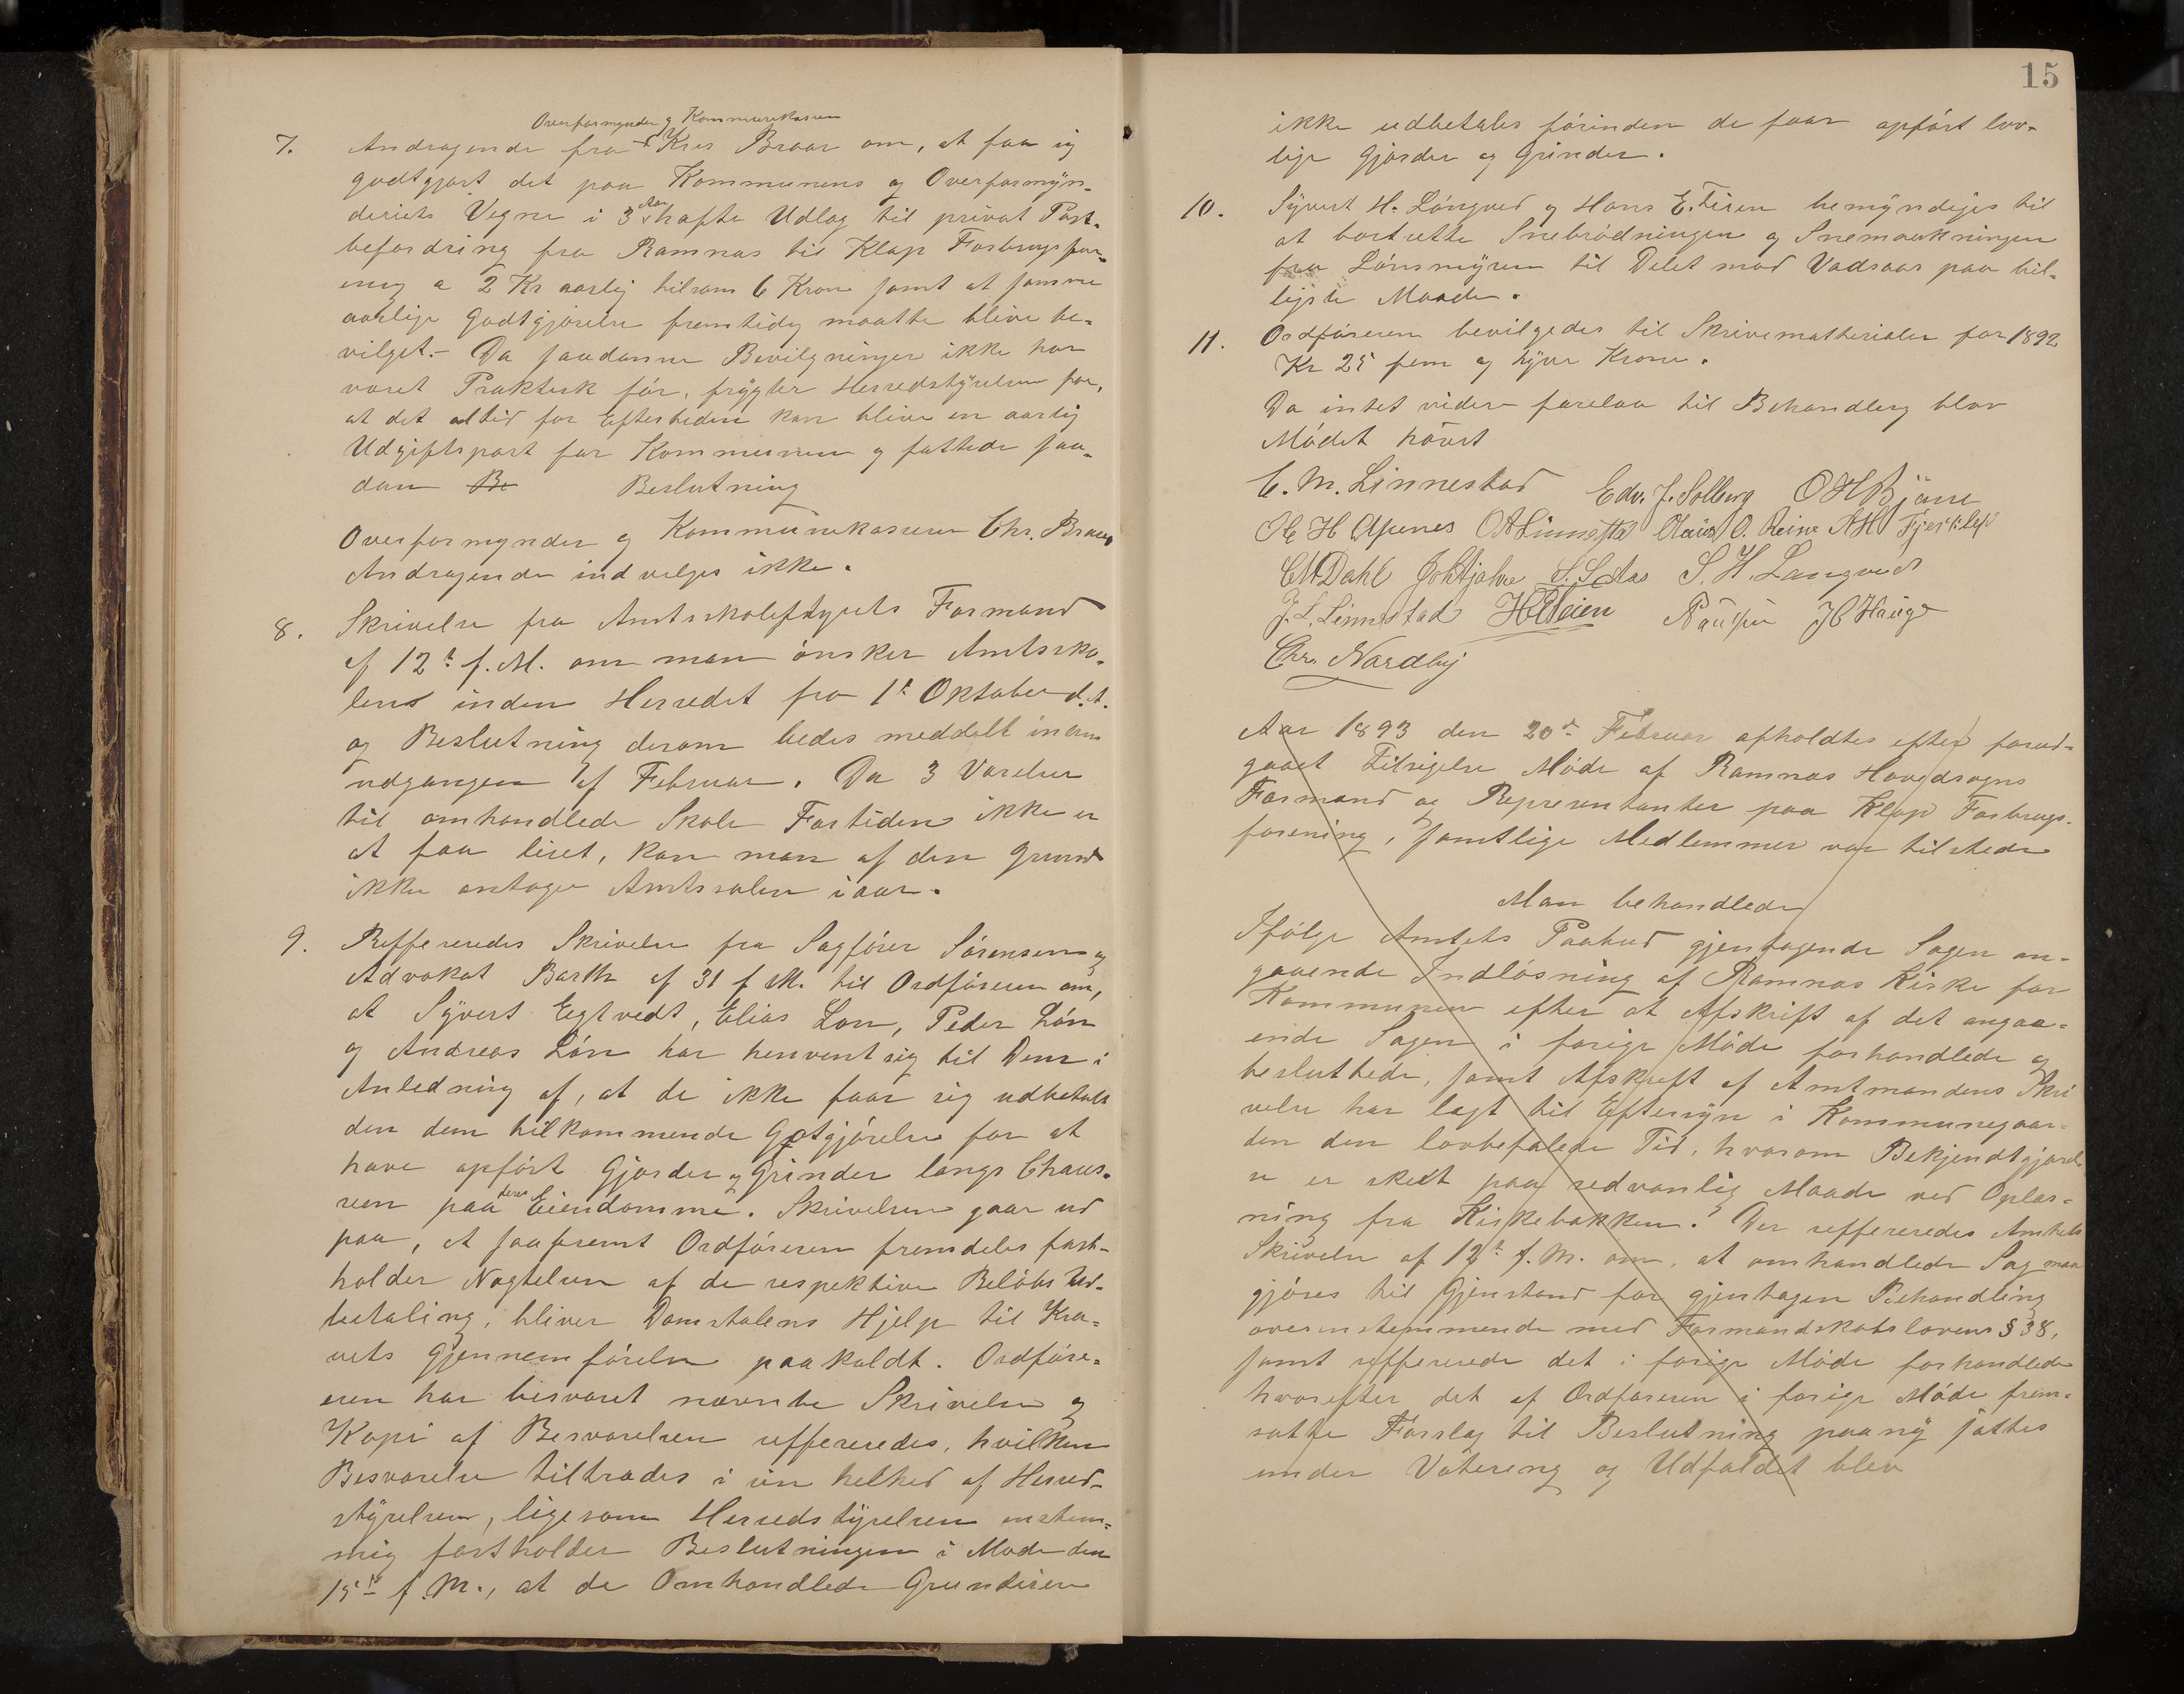 Overformynder og Kommunekasserer
7. Andragende fra Kres Braar om, at faa sig
godtgjort det paa Kommunens og Overformyn-
deriets Vegne i 3 Aar hafte Udlæg til privat Post-
befordring fra Ramnæs til Klap Forbrugsfor-
ening a 2 Kr aarlig tilsam 6 Kroner samt at samme
aarlige Godtgjørelse fremtidig maatte blive be-
vilget. - Da saadanne Bevilgninger ikke har
været Praktisk før, frygter Herredstyrelsen for,
at det altid for Eftertiden kan blive en aarlig
Udgiftspost for Kommunen og fattede saa-
dan Be Beslutning
Overformynder og Kommunekasserer Chr. Braar
Andragende indvilges ikke.
8. Skrivelse fra Amtsskolestyrets Formand
af 12te f. M. om man ønsker Amtssko-
lens inden Herredet fra 1te Oktober d. A.
og Beslutning derom bedes meddelt inden
udgangen af Februar. Da 3 Værelser
til omhandlede Skole Fortiden ikke er
at faa leiet, kan man af den Grund
ikke antage Amtsskolen iaar.
9. Reffereredes Skrivelse fra Sagfører Sørensen og
Advokat Barth af 31 f M. til Ordføreren om,
at Syvert Egtvedt, Elias Løn, Peder Løn
og Andreas Løn har henvent sig til Dem i
Anledning af, at de ikke faar sig udbetalt
den dem tilkommende Gotgjørelse for at
have opført Gjærder og Grinder langs Chaus-
seen paa deres Eiendomme. Skrivelsen gaar ud
paa, at saafremt Ordføreren fremdeles fast-
holder Nægtelsen af de respektive Beløbs Ud-
betaling, bliver Domstolens Hjelp til Kra-
vets Gjennemførelse paakaldt. Ordføre-
ren har besvaret nævnte Skrivelse og
Kopi af Besvarelsen reffereredes, hvilken
Besvarelse tiltrædes i sin helhed af Herred-
styrelsen, ligesom Herredstyrelsen enstem-
mig fastholder Beslutningen i Møde den
15de f. M., at de Omhandlede Grundeiere
15
ikke udbetales førinden de faar opført lov-
lige Gjærder og Grinder.
10. Syvert H. Långved og Hans E. Feien bemyndiges til
at bortsette Snebrødningen og Snemaakningen
fra Lønsmyren til Delet mod Vadsaas paa bil-
ligste Maade.
11. Ordføreren bevilgedes til Skrivematherialer for 1892
Kr 25 fem og tyve Kroner.
Da intet videre forelaa til Behandling blev
Mødet hævet
C. M. Linnestad Edv. J. Solberg O H Bjäne
H Apenes O A Linnestad O. Reine A H
C M Dahl S. S Aas S. H. Langved
J. L. Linnestad H E Feien H Hauge
Chr. Nordby
Aar 1893 den 20de Februar afholdtes efter forud-
gaaet Tilsigelse Møde af Ramnæs Hovedsogns
Formænd og Repræsentanter paa Klap Forbrugs-
forening, samtlige Medlemmer var tilstede
Man behandlede
Ifølge Amtets Paabud gjentagende Sagen an-
gaaende Indløsning af Ramnæs Kirke for
Kommunen efter at Afskrift af det angaa-
ende Sagen i forige Møde forhandlede og
besluttede, samt Afskrift af Amtmandens Skri
velse har lagt til Eftersyn i Kommunegaar-
den den lovbefalede Tid, hvorom Bekjendtgjørel-
se er skedt paa sedvanlig Maade ved Oplæs-
ning fra Kirkebakken. Der reffereredes Amtets
Skrivelse af 12te f. M. om, at omhandlede Sag maa
gjøres til Gjenstand for gjentagen Behandling
overensstemmende med Formandskabslovens § 38,
samt reffererede det i forige Møde forhandlede
hvorefter det af Ordføreren i forige Møde frem-
satte Forslag til Beslutning paany sattes
under Votering og Udfaldet blev